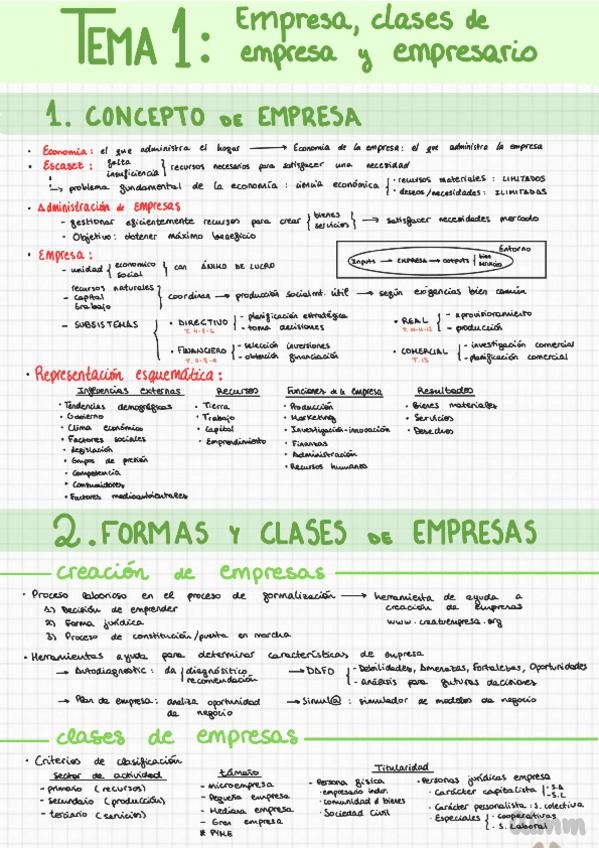 TEMA 1: Empresa, clases de
empresa y empresario
1. CONCEPTO DE EMPRESA
• Economía: el que administra el hogar → Economía de la empresa: el que administra la empresa
• Escasez: falta
insuficiencia } recursos necesarios para satisfacer una necesidad
↳ problema fundamental de la economía: ciencia económica { • recursos materiales: LIMITADOS
• deseos/necesidades: ILIMITADAS
• Administración de empresas
- gestionar eficientemente recursos para crear { bienes
servicios } → satisfacer necesidades mercado
- Objetivo: obtener máximo beneficio
• Empresa:
- unidad { económico
social } con ÁNIMO DE LUCRO
Entorno
Inputs → EMPRESA → outputs { bien
servicio
recursos naturales
- capital
trabajo } coordinar → producción socialmt. útil → según exigencias bien común
- SUBSISTEMAS
• DIRECTIVO { - planificación estratégica
T. 4-5-6 - toma decisiones
• REAL { - aprovisionamiento
- producción
• FINANCIERO { - selección inversiones
- obtención financiación
• COMERCIAL { - investigación comercial
T. 13 - planificación comercial
• Representación esquemática:
Influencias externas
• Tendencias demográficas
• Gobierno
• Clima económico
• Factores sociales
• Legislación
• Grupos de presión
• Competencia
• Consumidores
• Factores medioambientales
Recursos
• Tierra
• Trabajo
• Capital
• Emprendimiento
Funciones de la empresa
• Producción
• Marketing
• Investigación-innovación
• Finanzas
• Administración
• Recursos humanos
Resultados
• Bienes materiales
• Servicios
• Desechos
2. FORMAS Y CLASES DE EMPRESAS
creación de empresas
• Proceso laborioso en el proceso de formalización → herramienta de ayuda a
creación de empresas
www.creatuempresa.org
1) Decisión de emprender
2) Forma jurídica
3) Proceso de constitución/puesta en marcha
• Herramientas ayuda para determinar características de empresa
→ Autodiagnostic: da { diagnóstico
recomendación
→ DAFO { - Debilidades, Amenazas, Fortalezas, Oportunidades
- análisis para futuras decisiones
→ Plan de empresa: analiza oportunidad
de negocio
→ Simul@: simulador de modelos de negocio
clases de empresas
• Criterios de clasificación
Sector de actividad
- primario (recursos)
- secundario (producción)
- terciario (servicios)
tamaño
- microempresa
- Pequeña empresa
- Mediana empresa
- Gran empresa
* PYME
Titularidad
- Persona física
• empresado indvr.
• comunidad d bienes
• Sociedad Civil
• Personas jurídicas empresa
- Carácter capitalista { - S.A
- S.L
- Carácter personalista: S. colectiva
- Especiales { - cooperativas
- S. Laboral